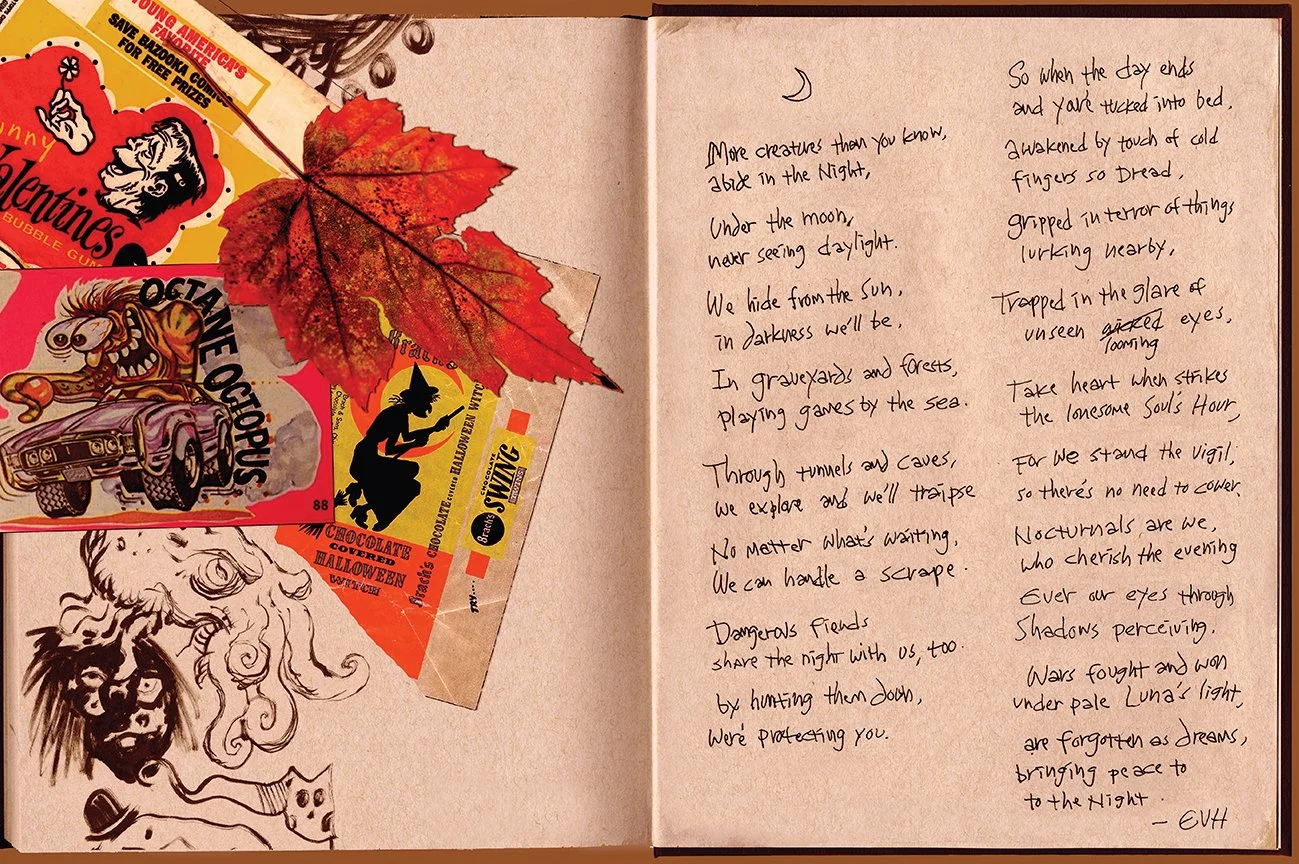 YOUNG AMERICA'S
FAVORITE
SAVE BAZOOKA COMICS
FOR FREE PRIZES
unny
Valentines
BUBBLE GUM
OCTANE OCTOPUS
88
Brach's
CHOCOLATE
COVERED
HALLOWEEN
WITCH
Brach's CHOCOLATE COVERED HALLOWEEN WITCH
TRY....
Brach's
CHOCOLATE
SWING
More creatures than you know,
abide in the Night,
Under the moon,
never seeing daylight.
We hide from the Sun,
in darkness we'll be,
In graveyards and forests,
playing games by the sea.
Through tunnels and caves,
we explore and we'll traipse
No matter what's waiting,
We can handle a scrape.
Dangerous Fiends
share the night with us, too.
by hunting them down,
We're protecting you.
So when the day ends
and you're tucked into bed,
awakened by touch of cold
fingers so Dread,
gripped in terror of things
lurking nearby,
Trapped in the glare of
unseen wicked eyes,
looming
Take heart when strikes
the lonesome Soul's Hour,
For we stand the vigil;
so there's no need to cower.
Nocturnals are we,
who cherish the evening
Ever our eyes through
Shadows perceiving.
Wars fought and won
under pale Luna's light,
are forgotten as dreams,
bringing peace to
to the Night.
— EVH